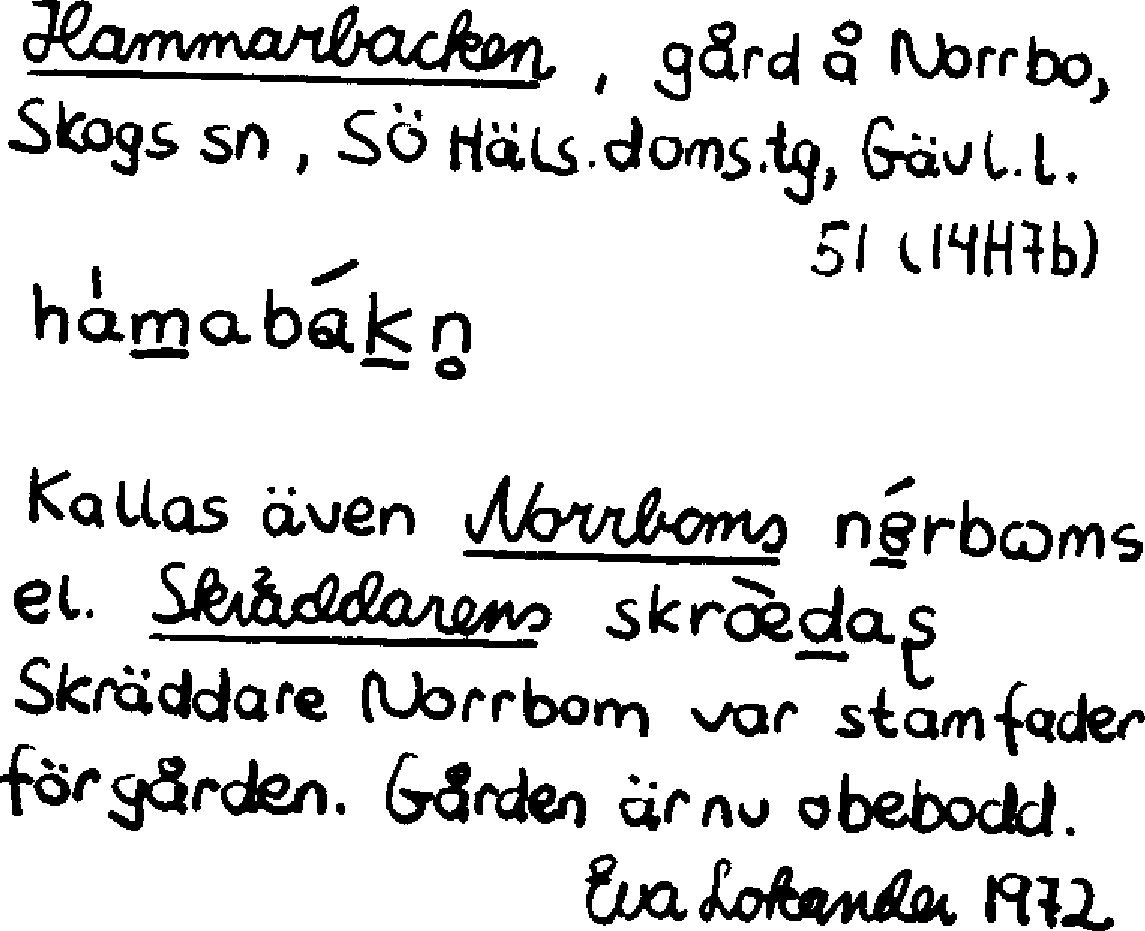 Hammarbacken, gård å Norrbo,
Skogs sn, Sö Häls.doms.tg, Gävl.l.
51 (14H7b)
hàmabákn̥
Kallas även Norrboms nérbωms
el. Skräddarens skræ̀daʂ
Skräddare Norrbom var stamfader
för gården. Gården är nu obebodd.
Eva 1972